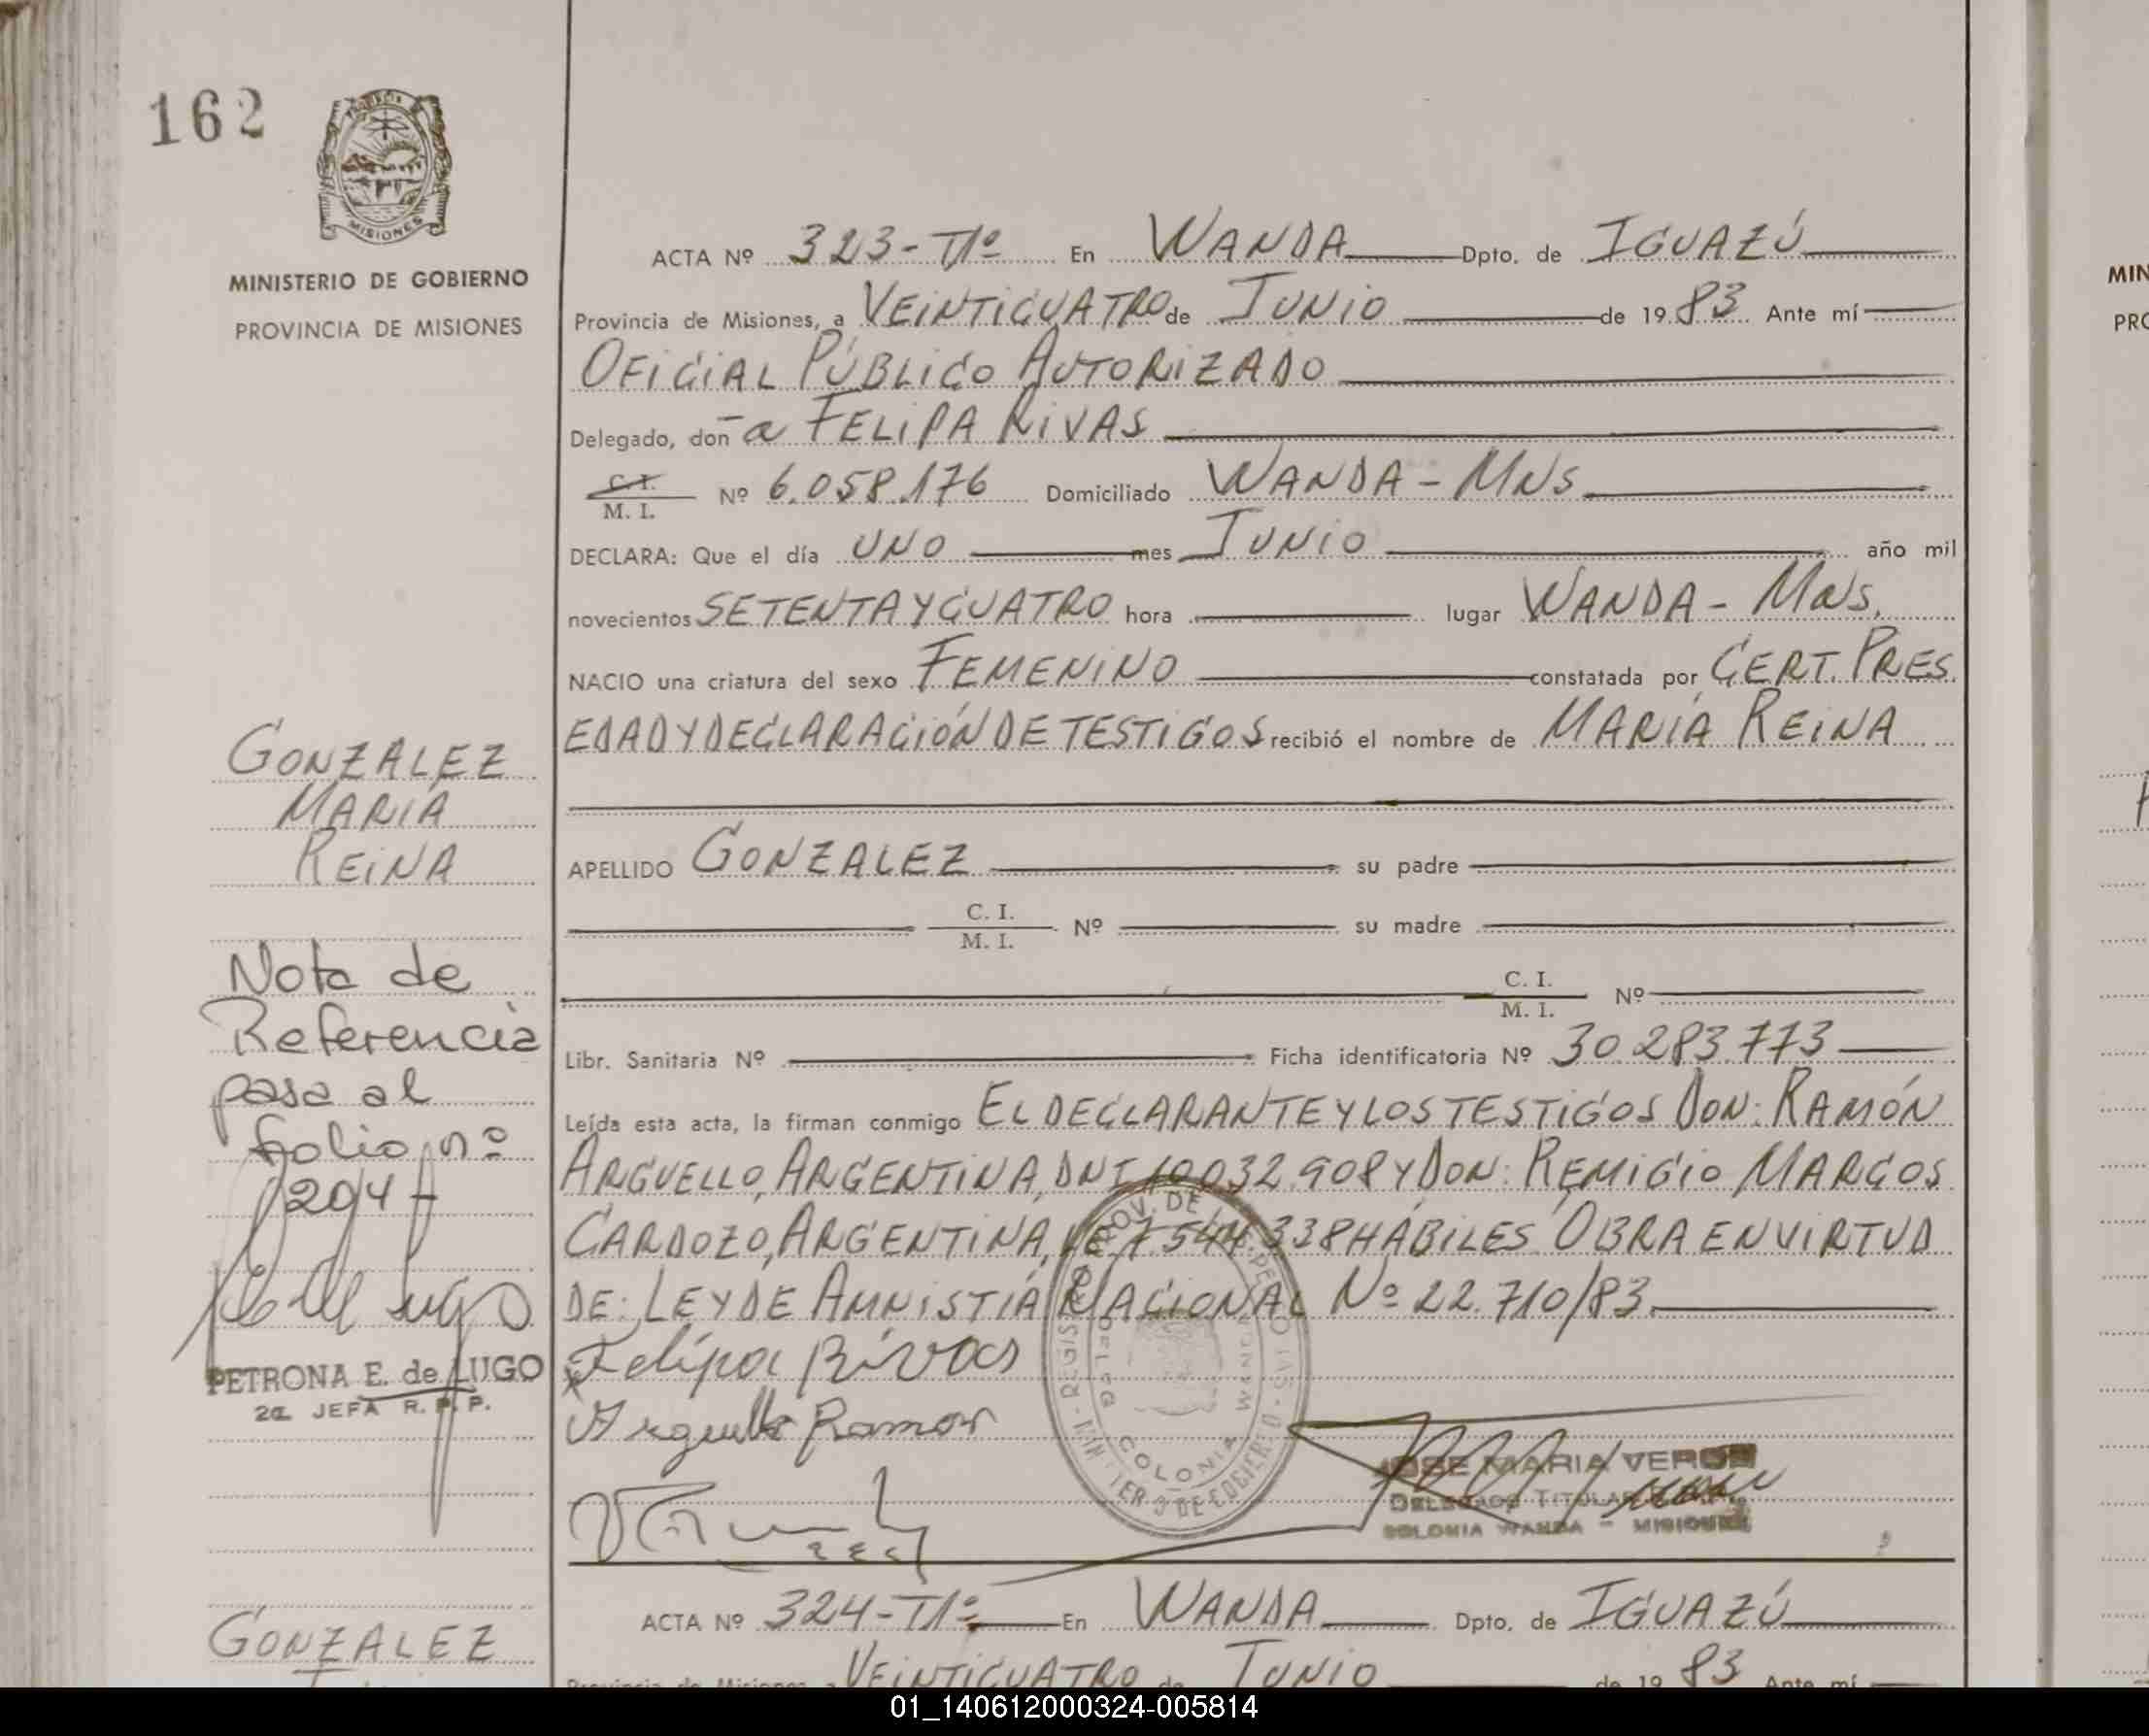 162
MISIONES
MINISTERIO DE GOBIERNO
PROVINCIA DE MISIONES
ACTA Nº 323-Tº1º En WANDA Dpto. de IGUAZÚ
Provincia de Misiones, a VEINTICUATRO de JUNIO de 19 83 Ante mí
OFICIAL PÚBLICO AUTORIZADO
Delegado, don a FELIPA RIVAS
C.I. M. I. Nº 6.058.176 Domiciliado WANDA - MNS
DECLARA: Que el día UNO mes JUNIO año mil
novecientos SETENTA Y CUATRO hora lugar WANDA - MNS.
NACIO una criatura del sexo FEMENINO constatada por CERT. PRES.
EDAD Y DECLARACIÓN DE TESTIGOS recibió el nombre de MARÍA REINA
GONZALEZ
MARÍA
REINA
APELLIDO GONZALEZ su padre
C. I. M. I. Nº su madre
C. I. M. I. Nº
Libr. Sanitaria Nº Ficha identificatoria Nº 30.283.773
Leída esta acta, la firman conmigo EL DECLARANTE Y LOS TESTIGOS DON: RAMÓN
ARGUELLO, ARGENTINA, DNI 10.032.908 Y DON: REMIGIO MARCOS
CARDOZO, ARGENTINA, LE 7.544.338 HÁBILES. OBRA EN VIRTUD
DE: LEY DE AMNISTÍA NACIONAL Nº 22.710/83.
Nota de
Referencia
pasa al
folio nº
204
PETRONA E. de LUGO
2a JEFA R. P. P.
Felipa Rivas
Arguello Ramon
COLONIA WANDA
JOSE MARIA VERON
DELEGADO TITULAR
COLONIA WANDA - MISIONES
ACTA Nº 324-T1º En WANDA Dpto. de IGUAZÚ
GONZALEZ
Provincia de Misiones, a VEINTICUATRO de JUNIO de 19 83 Ante mí
01_140612000324-005814